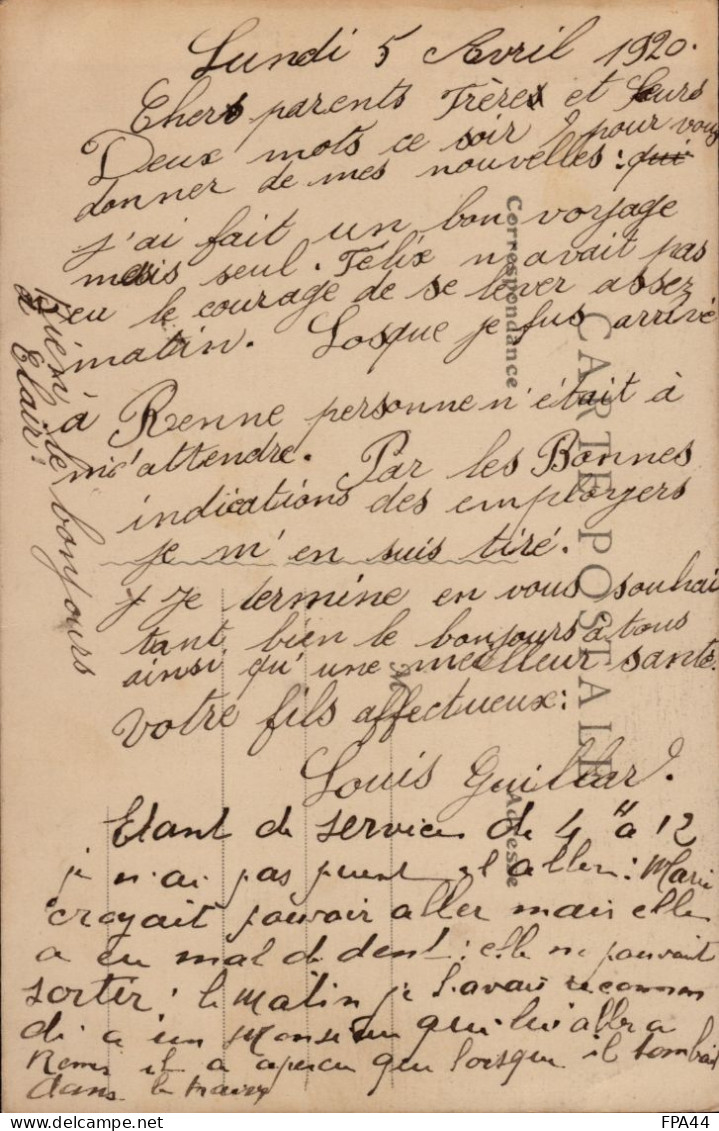 Lundi 5 Avril 1920.
Chers parents Frères et Sœurs
Deux mots ce soir pour vous
donner de mes nouvelles : qui
j'ai fait un bon voyage
mais seul. Félix n'avait pas
eu le courage de se lever assez
matin. Losque je fus arrivé
à Renne personne n'était à
m'attendre. Par les Bonnes
indications des employers
je m'en suis tiré.
Je termine en vous souhai
tant bien le bonjours à tous
ainsi qu'une meilleur santé.
Votre fils affectueux :
Louis
Etant de service de 4 h à 12
je n'ai pas aller : Marie
croyait pouvoir aller mais elle
a eu mal de dent : elle ne pouvait
sortir : le matin je l'avais recomman
di a un Monsieur qui
il a aperçu que lorsque il tombait
dans le
Bien le bonjours
à Clair :
Correspondance
CARTE POSTALE
M
Adresse
FPA44